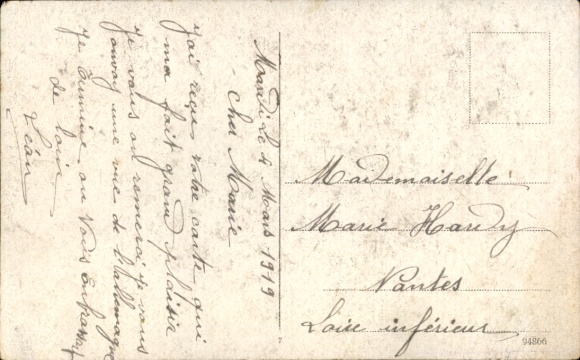 Mardi Le 4 Mars 1919
Cher Marie
j'ai reçu votre carte qui
ma fait grand plaisir
je vous en remerci je vous
envoy une vue de l'allemagne
je termine en vous enbrassant
de loin
Léon
Mademoiselle
Marie Hardy
Nantes
Loire inférieur
94866